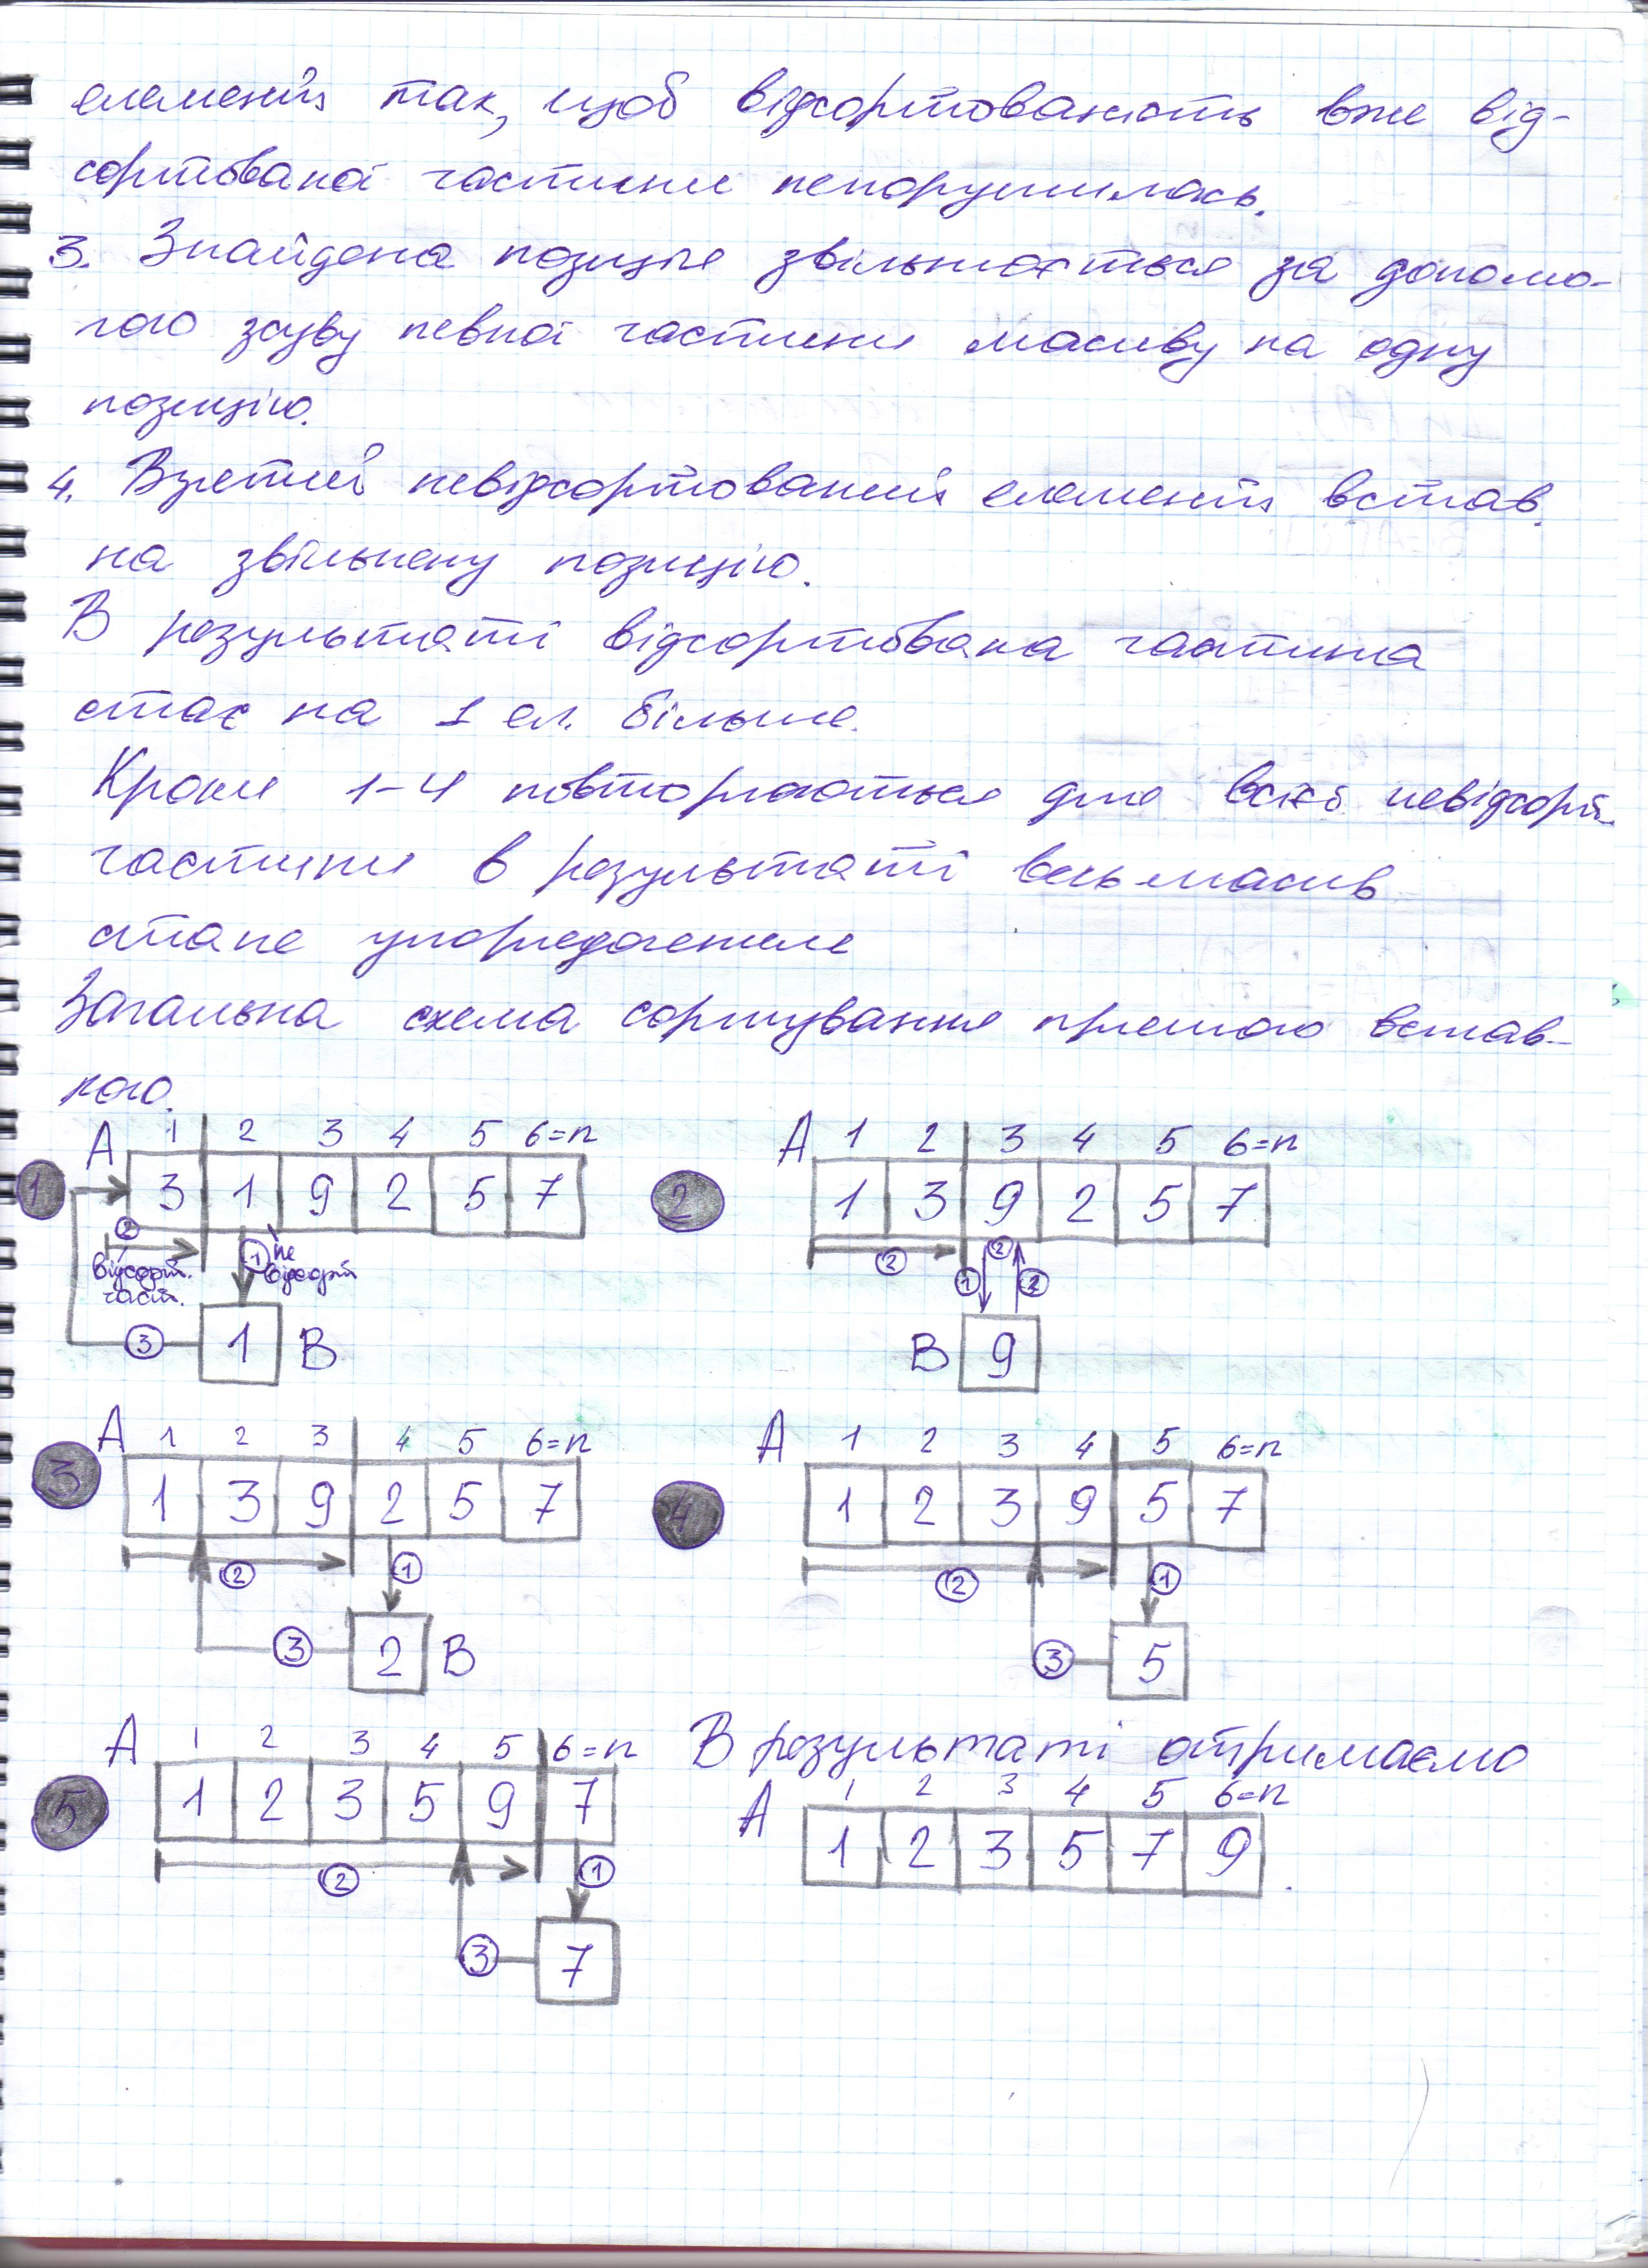 елемент так, щоб відсортованість вже від-
сортованої частини непорушилась.
3. Знайдена позиція звільнюється за допомо-
гою зсуву певної частини масиву на одну
позицію.
4. Взятий невідсортований елемент встав.
на звільнену позицію.
В результаті відсортована частина
стає на 1 ел. більше.
Кроки 1-4 повторюються для всієї невідсорт.
частини в результаті весь масив
стане упорядочение
Загальна схема сортування прямого встав-
кою.
A 1 2 3 4 5 6=n
1 3 1 9 2 5 7
2 1 не відсорт
відсорт. част.
3 1 B
A 1 2 3 4 5 6=n
2 1 3 9 2 5 7
2 2
1 2
B 9
A 1 2 3 4 5 6=n
3 1 3 9 2 5 7
2 1
3 2 B
A 1 2 3 4 5 6=n
4 1 2 3 9 5 7
2 1
3 5
A 1 2 3 4 5 6=n
5 1 2 3 5 9 7
2 1
3 7
В результаті отримаємо
A 1 2 3 4 5 6=n
1 2 3 5 7 9 .